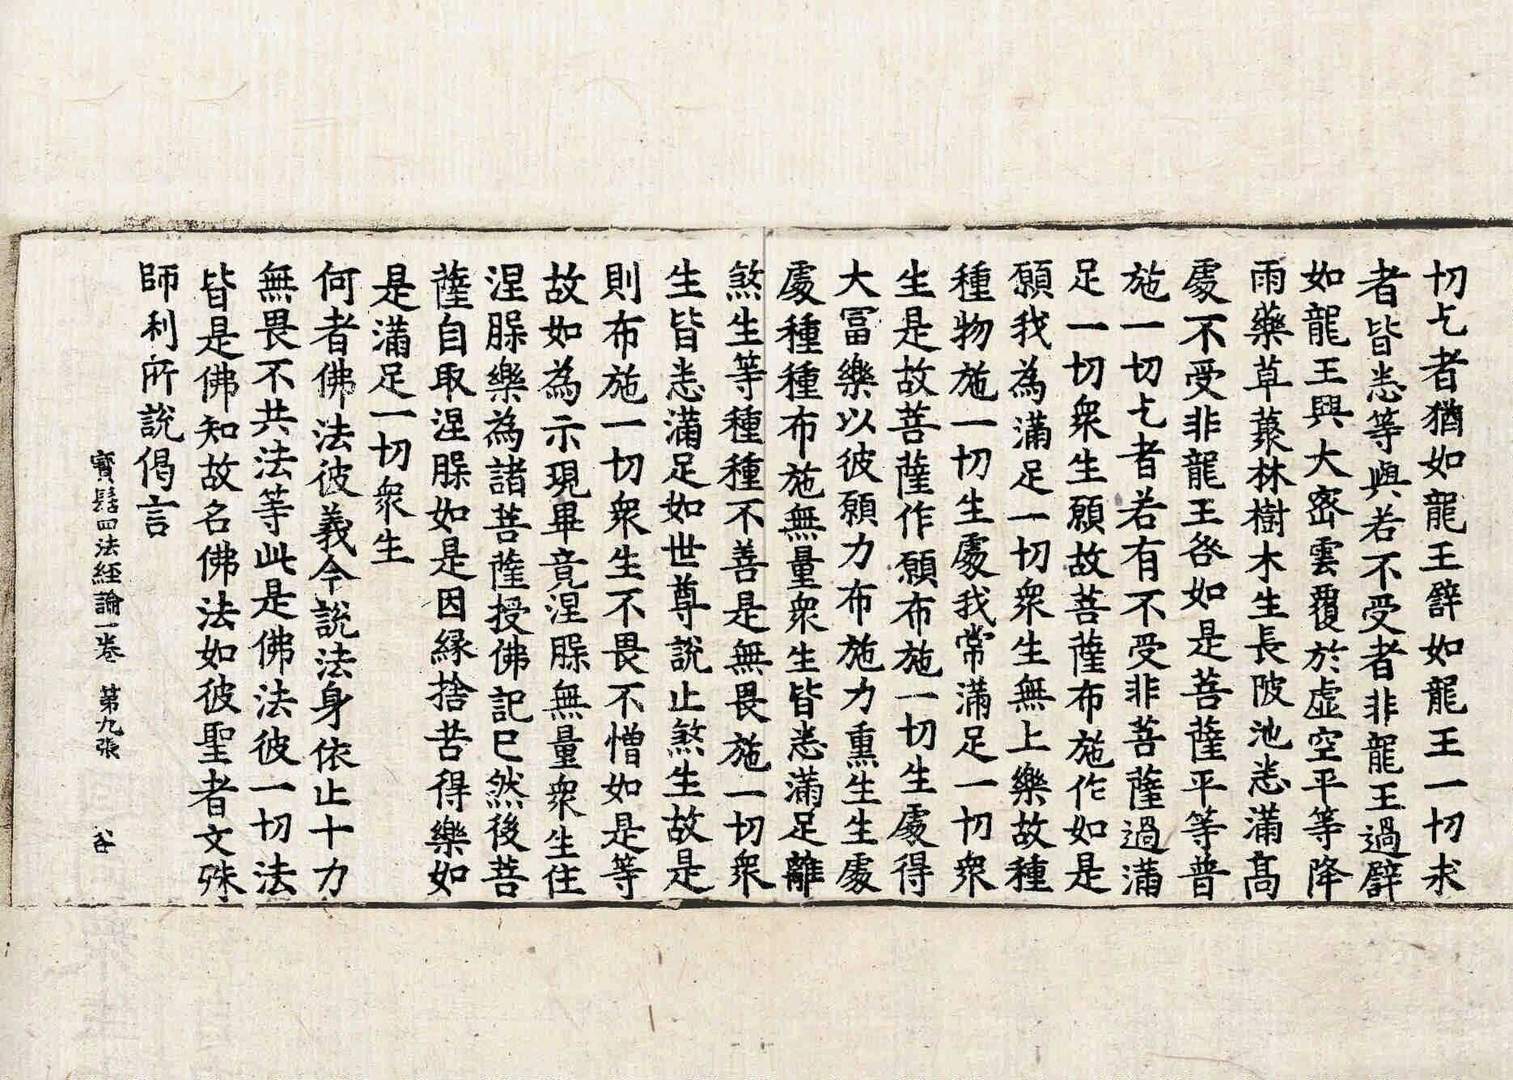 切乞者猶如龍王譬如龍王一切求
者皆悉等與若不受者非龍王過譬
如龍王興大密雲覆於虛空平等降
雨藥草藂林樹木生長陂池悉滿髙
處不受非龍王咎如是菩薩平等普
施一切乞者若有不受非菩薩過滿
足一切衆生願故菩薩布施作如是
願我為滿足一切衆生無上樂故種
種物施一切生處我常滿足一切衆
生是故菩薩作願布施一切生處得
大冨樂以彼願力布施力熏生生處
處種種布施無量衆生皆悉滿足離
煞生等種種不善是無畏施一切衆
生皆悉滿足如世尊說止煞生故是
則布施一切衆生不畏不憎如是等
故如為示現畢竟涅縣無量衆生住
涅縣樂為諸菩薩授佛記已然後菩
薩自取涅縣如是因縁捨苦得樂如
是滿足一切衆生
何者佛法彼義今說法身依止十力
無畏不共法等此是佛法彼一切法
皆是佛知故名佛法如彼聖者文殊
師利所說偈言
寶髻四法經論一卷 第九張 谷